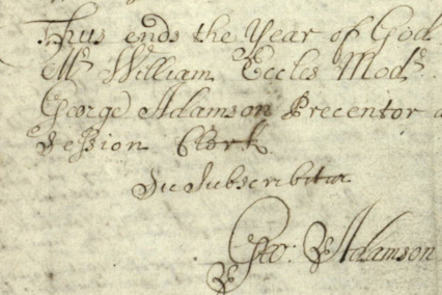 Thus ends the Year of God
Mr William Eccles Modr.
George Adamson Precentor a
Session Clerk
Sic Subscribitur
Geo: Adamson